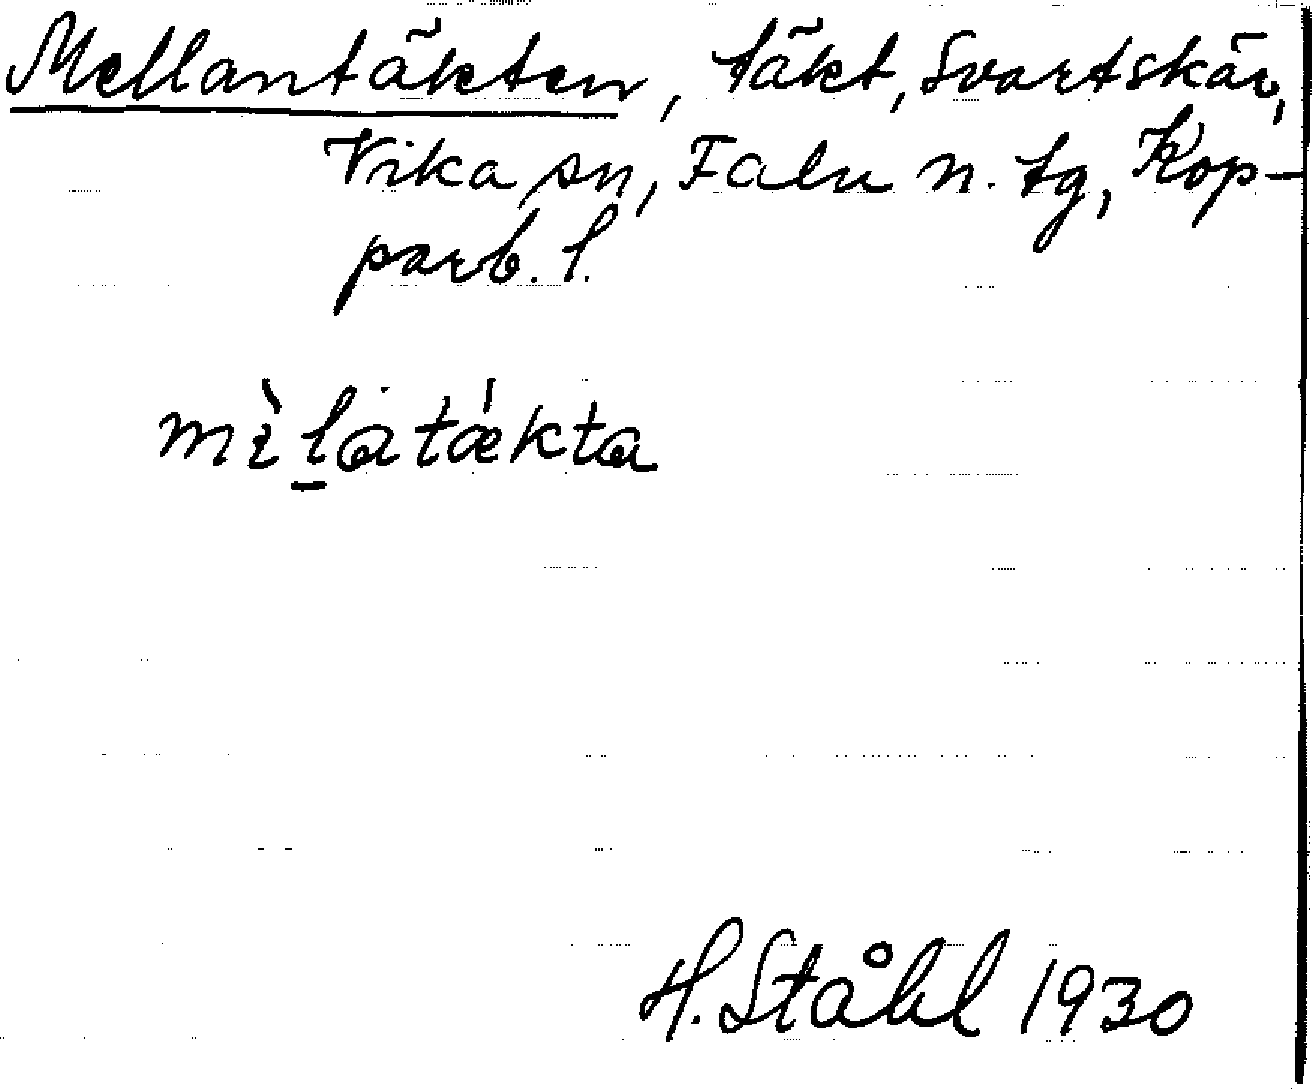 Mellantäkten, täkt, Svartskär,
Vika sn, Falu n. tg, Kop-
parb. l.
mìlatækta
H. Ståhl 1930